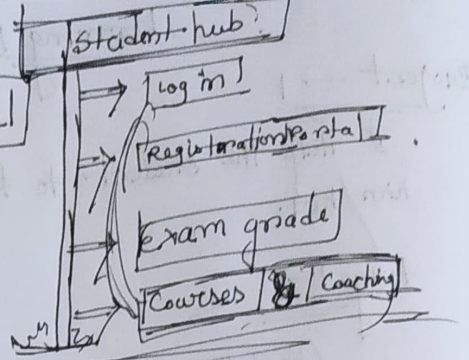 Student hub
Log in
Registration Portal
Exam griade
Courses & Coaching